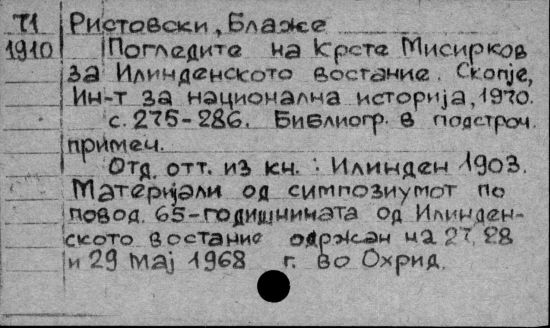 71 Ристовски, Блаже
1910 Погледите на Крсте Мисирков
за Илинденското востание. Скопје,
Ин-т за национална историја, 1970.
с. 275-286. Библиогр. в подстроч.
примеч.
Отд. отт. из кн.: Илинден 1903.
Материјали од симпозиумот по
повод. 65-годишнината од Илинден-
ското востание одржан на 27, 28
и 29 мај 1968 г. во Охрид.